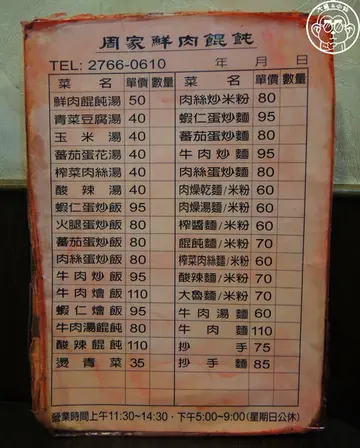 周家鮮肉餛飩
TEL: 2766-0610 年 月 日
菜名 單價 數量 菜名 單價 數量
鮮肉餛飩湯 50 肉絲炒米粉 80
青菜豆腐湯 40 蝦仁蛋炒麵 95
玉米湯 40 蕃茄蛋炒麵 80
蕃茄蛋花湯 40 牛肉炒麵 95
榨菜肉絲湯 40 肉絲蛋炒麵 80
酸辣湯 40 肉燥乾麵/米粉 60
蝦仁蛋炒飯 95 肉燥湯麵/米粉 60
火腿蛋炒飯 80 榨醬麵/米粉 60
蕃茄蛋炒飯 80 餛飩麵/米粉 70
肉絲蛋炒飯 80 榨菜肉絲麵/米粉 60
牛肉炒飯 95 酸辣麵/米粉 70
牛肉燴飯 110 大魯麵/米粉 70
蝦仁燴飯 110 牛肉湯麵 60
牛肉湯餛飩 80 牛肉麵 110
酸辣餛飩 80 抄手 75
燙青菜 35 抄手麵 85
營業時間上午11:30~14:30，下午5:00~9:00(星期日公休)